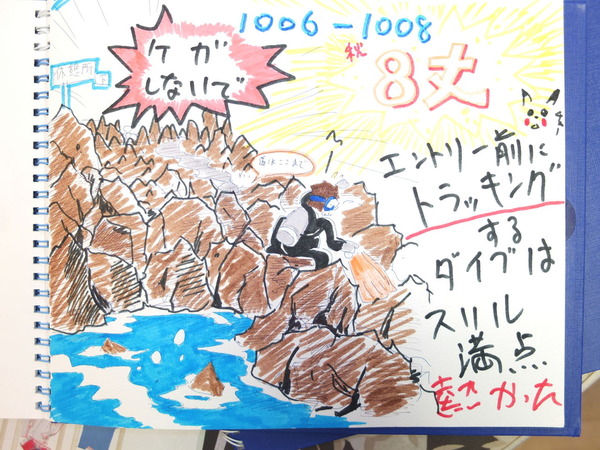 1006-1008
秋
8丈
ケガ
しないで
休憩所
エントリー前に
トラッキング
する
ダイブは
スリル
満点